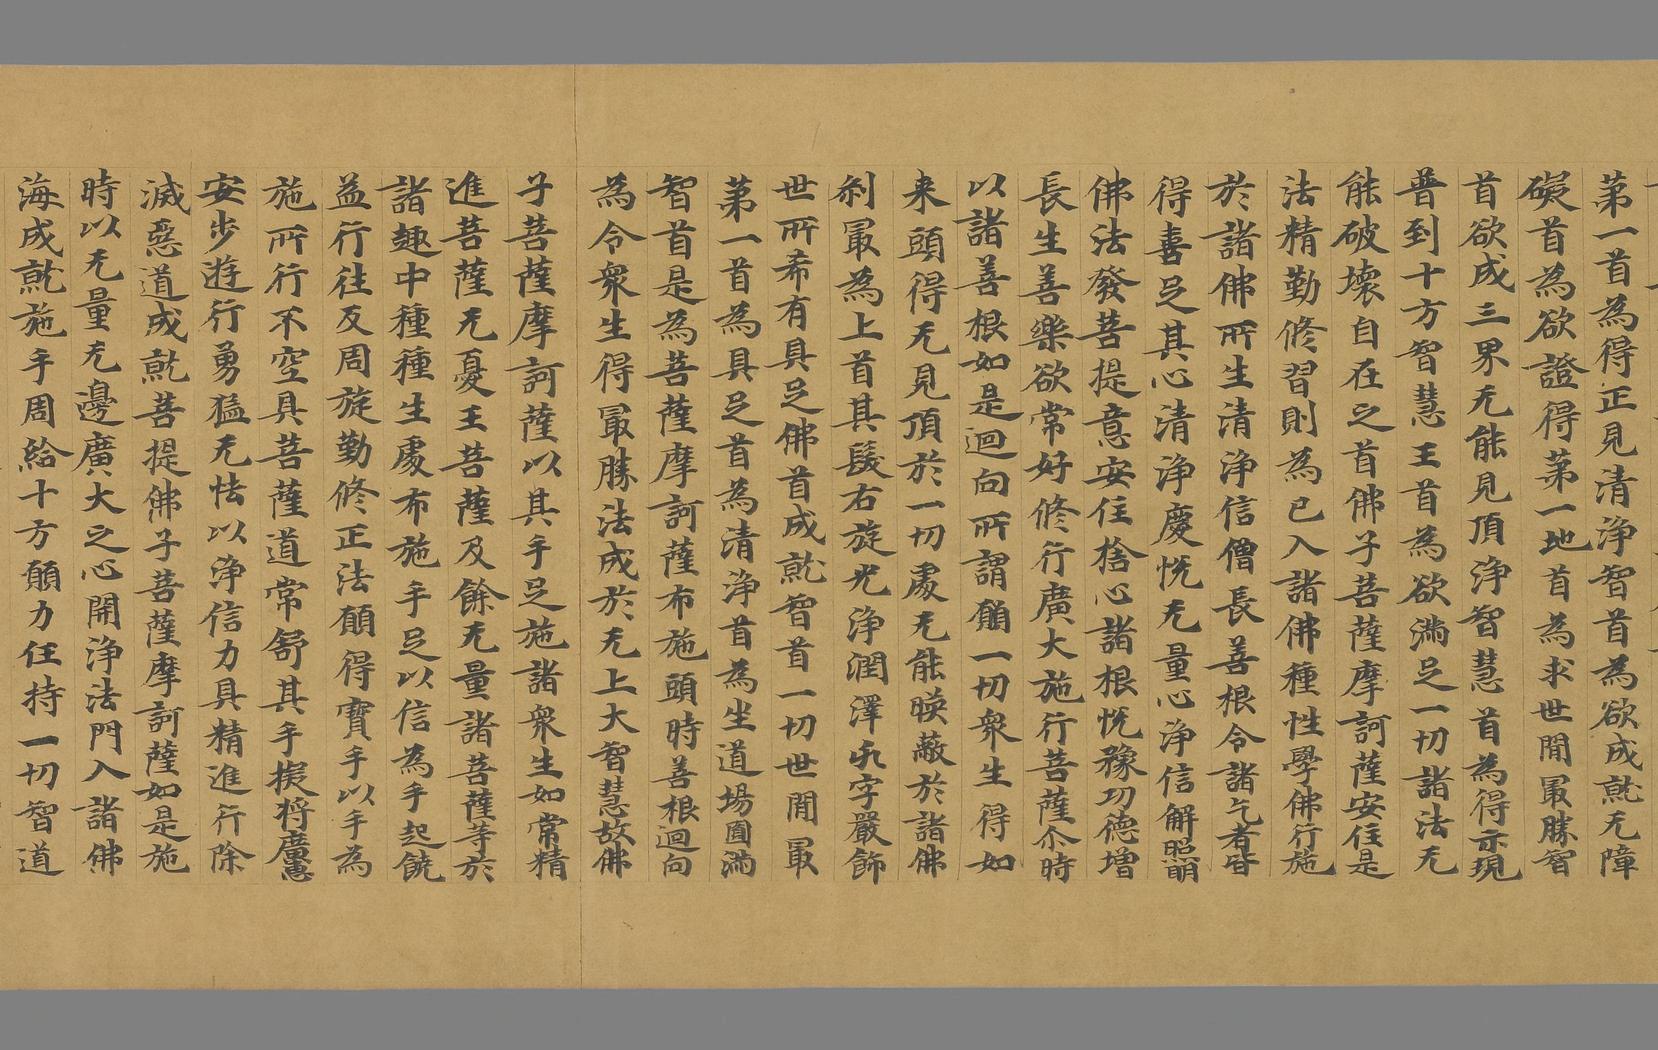 第一首為得正見清淨智首為欲成就无障
礙首為欲證得第一地首為求世間冣勝智
首欲成三界无能見頂淨智慧首為得示現
普到十方智慧王首為欲滿足一切諸法无
能破壞自在之首佛子菩薩摩訶薩安住是
法精勤修習則為已入諸佛種性學佛行施
於諸佛所生清淨信僧長善根令諸乞者皆
得喜足其心清淨慶恱无量心淨信解照明
佛法發菩提意安住捨心諸根恱豫功德增
長生善樂欲常好修行廣大施行菩薩尒時
以諸善根如是迴向所謂願一切衆生得如
来頭得无見頂於一切處无能暎蔽於諸佛
刹冣為上首其髮右旋光淨潤澤卍字嚴飾
世所希有具足佛首成就智首一切世間冣
第一首為具足首為清淨首為坐道場圓滿
智首是為菩薩摩訶薩布施頭時善根迴向
為令衆生得冣勝法成於无上大智慧故佛
子菩薩摩訶薩以其手足施諸衆生如常精
進菩薩无憂王菩薩及餘无量諸菩薩等於
諸趣中種種生處布施手足以信為手起饒
益行往及周旋勤修正法願得寶手以手為
施所行不空具菩薩道常舒其手擬將廣惠
安步遊行勇猛无怯以淨信力具精進行除
滅惡道成就菩提佛子菩薩摩訶薩如是施
時以无量无邊廣大之心開淨法門入諸佛
海成就施手周給十方願力任持一切智道